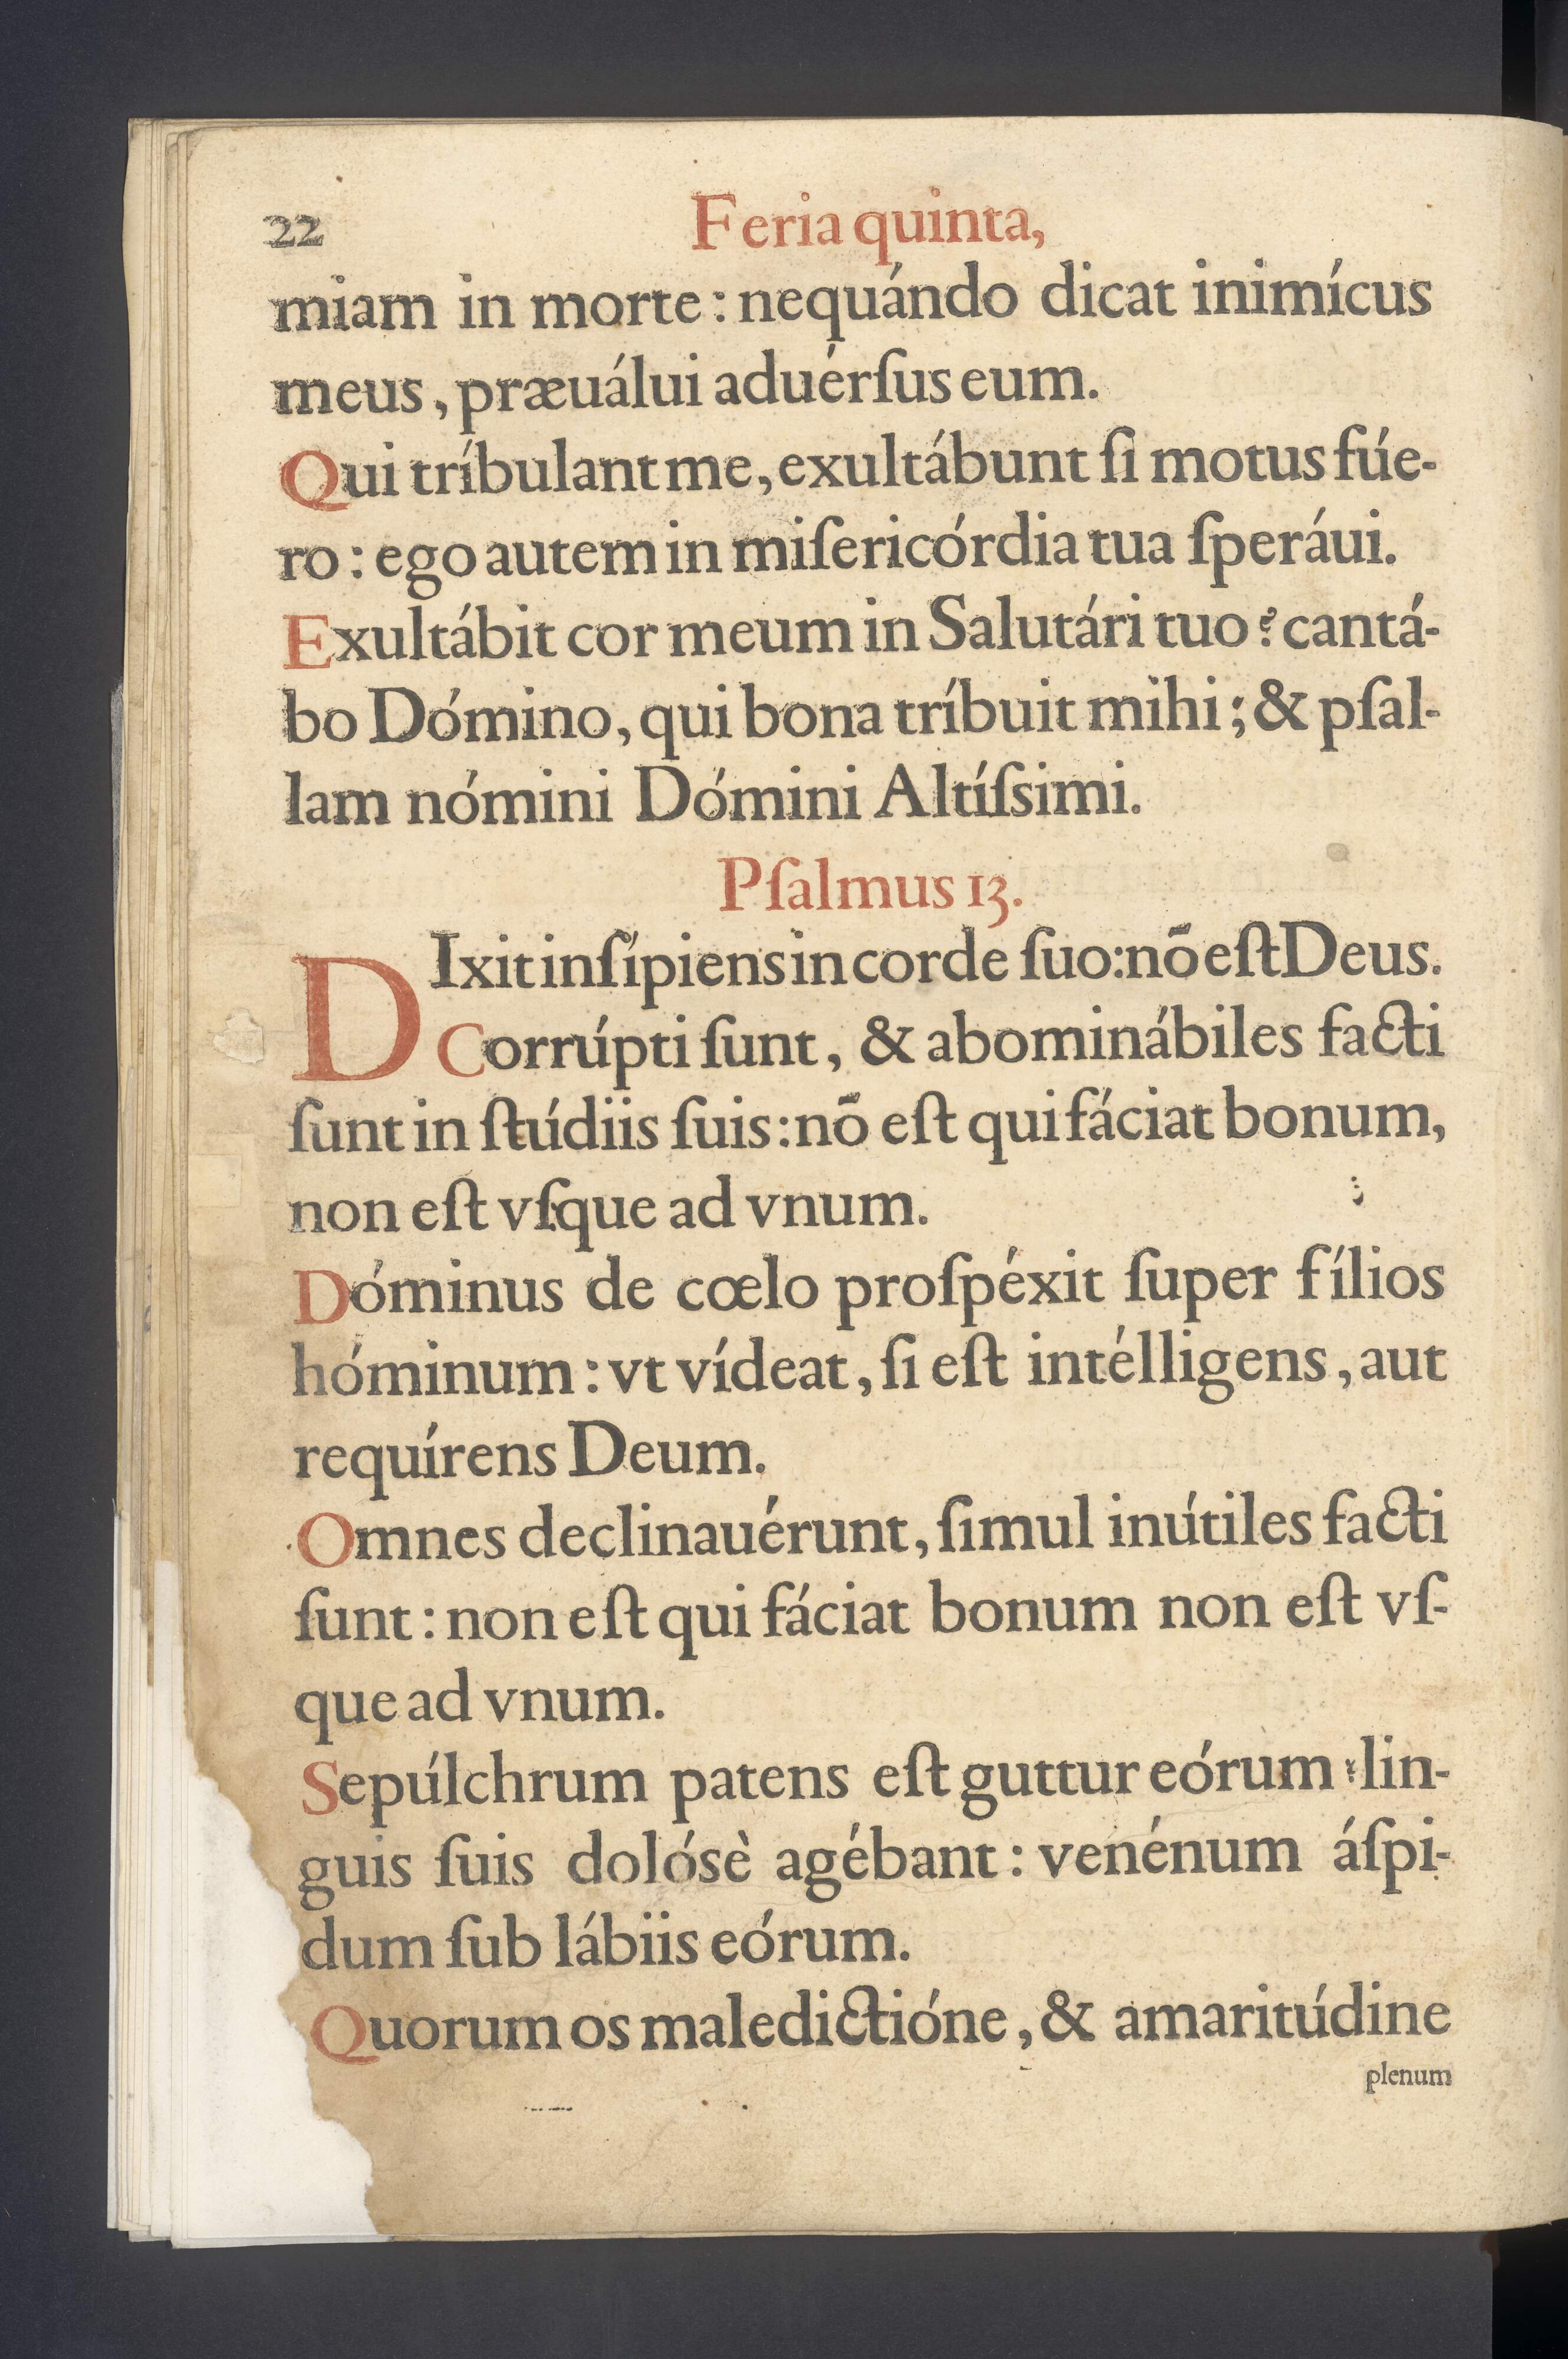 22 Feria quinta,
miam in morte: nequándo dicat inimícus
meus, præuálui aduérſus eum.
Qui tríbulant me, exultábunt ſi motus fúe-
ro: ego autem in miſericórdia tua ſperáui.
Exultábit cor meum in Salutári tuo: cantá-
bo Dómino, qui bona tríbuit mihi; & pſal-
lam nómini Dómini Altíſsimi.
Pſalmus 13.
DIxit inſípiens in corde ſuo: nõ eſt Deus.
Corrúpti ſunt, & abominábiles facti
ſunt in ſtúdiis ſuis: nõ eſt qui fáciat bonum,
non eſt vſque ad vnum.
Dóminus de cœlo proſpéxit ſuper fílios
hóminum: vt vídeat, ſi eſt intélligens, aut
requírens Deum.
Omnes declinauérunt, ſimul inútiles facti
ſunt: non eſt qui fáciat bonum non eſt vſ-
que ad vnum.
Sepúlchrum patens eſt guttur eórum: lin-
guis ſuis dolósè agébant: venénum áſpi-
dum ſub lábiis eórum.
Quorum os maledictióne, & amaritúdine
plenum